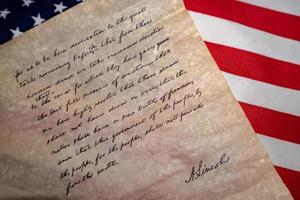 for us to be here dedicated to the great
task remaining before us that from these
honored dead we take increased devotion
to that cause for which they here gave
the last full measure of devotion that
we here highly resolve that these dead
shall not have died in vain, that this
nation shall have a new birth of freedom,
and that this government of the people, by
the people, for the people, shall not perish
from the earth.
A. Lincoln